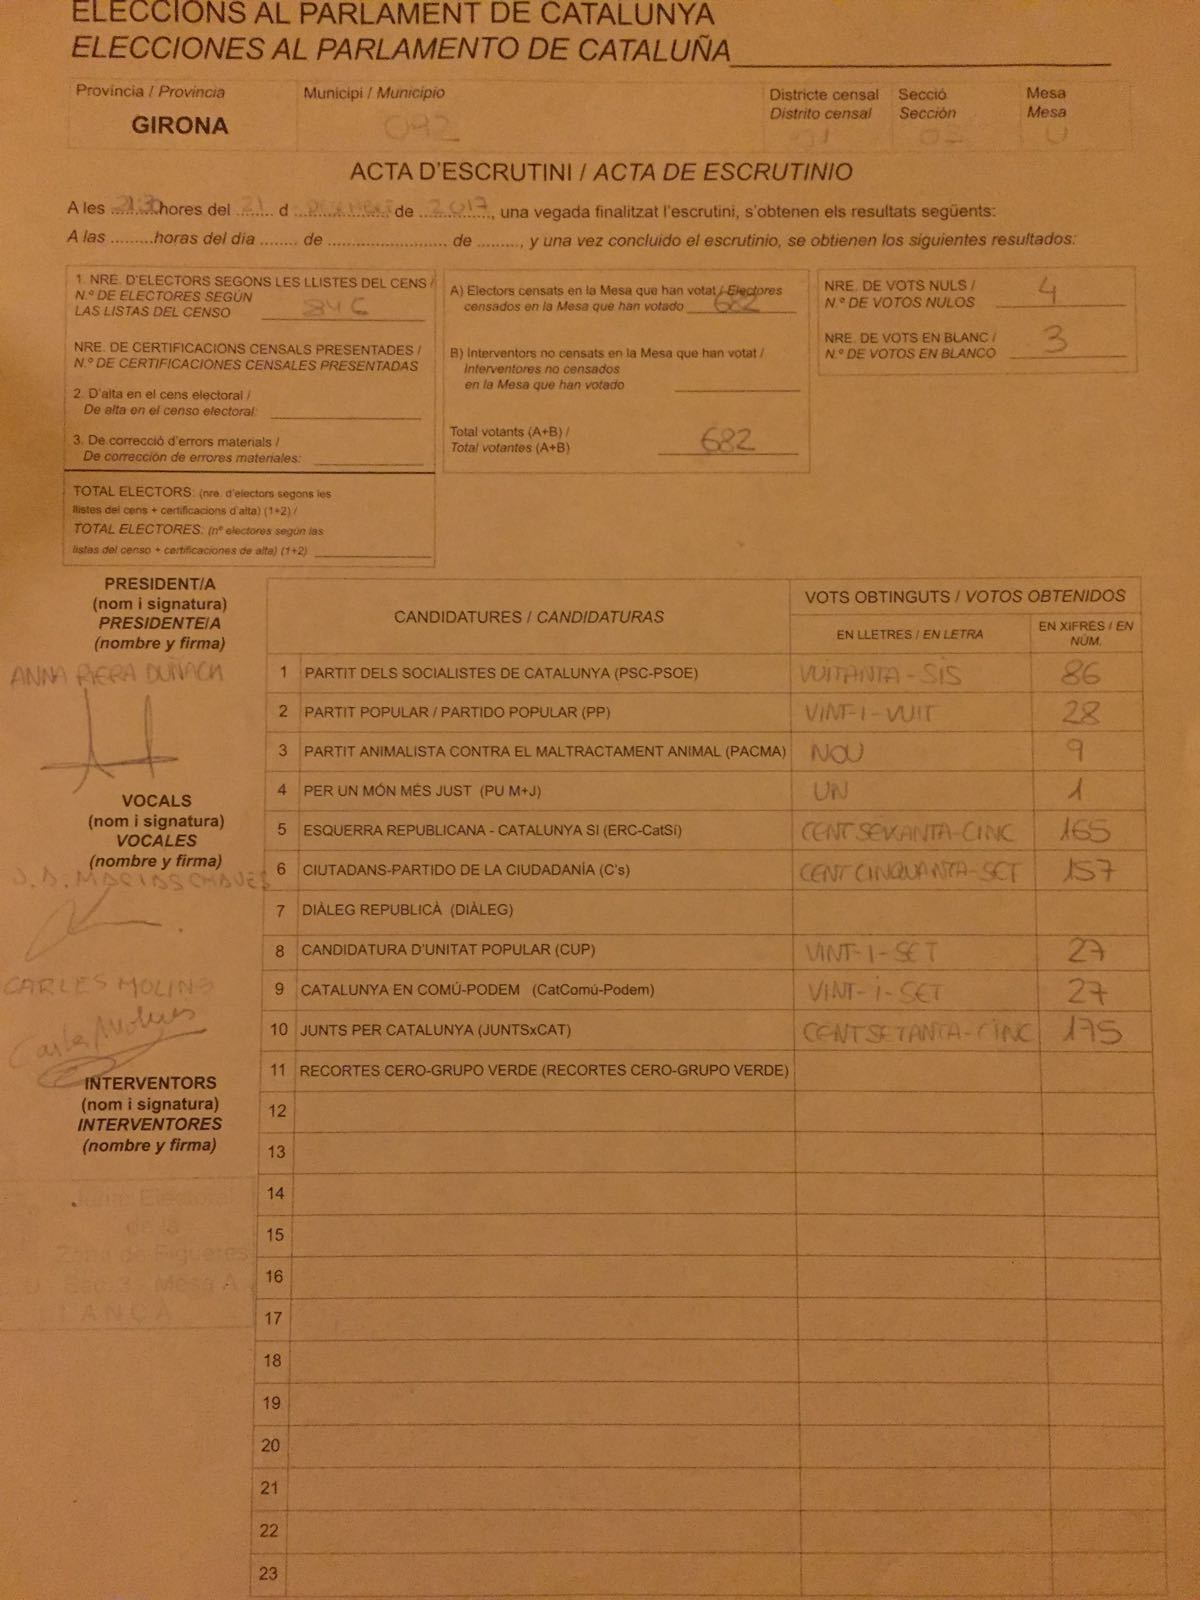 ELECCIONS AL PARLAMENT DE CATALUNYA
ELECCIONES AL PARLAMENTO DE CATALUÑA
Província / Provincia
GIRONA
Municipi / Municipio
092
Districte censal
Distrito censal
01
Secció
Sección
03
Mesa
Mesa
U
ACTA D'ESCRUTINI / ACTA DE ESCRUTINIO
A les 21:30 hores del 21 d DESEMBRE de 2017, una vegada finalitzat l'escrutini, s'obtenen els resultats següents:
A las .........horas del día ........ de ......................... de ........., y una vez concluido el escrutinio, se obtienen los siguientes resultados:
1. NRE. D'ELECTORS SEGONS LES LLISTES DEL CENS /
N.º DE ELECTORES SEGÚN
LAS LISTAS DEL CENSO 846
NRE. DE CERTIFICACIONS CENSALS PRESENTADES /
N.º DE CERTIFICACIONES CENSALES PRESENTADAS
2. D'alta en el cens electoral /
De alta en el censo electoral:
3. De correcció d'errors materials /
De corrección de errores materiales:
TOTAL ELECTORS: (nre. d'electors segons les
llistes del cens + certificacions d'alta) (1+2) /
TOTAL ELECTORES: (nº electores según las
listas del censo + certificaciones de alta) (1+2)
A) Electors censats en la Mesa que han votat / Electores
censados en la Mesa que han votado 682
B) Interventors no censats en la Mesa que han votat /
Interventores no censados
en la Mesa que han votado
Total votants (A+B) /
Total votantes (A+B) 682
NRE. DE VOTS NULS /
N.º DE VOTOS NULOS 4
NRE. DE VOTS EN BLANC /
N.º DE VOTOS EN BLANCO 3
PRESIDENT/A
(nom i signatura)
PRESIDENTE/A
(nombre y firma)
ANNA RIERA DUÑACH
VOCALS
(nom i signatura)
VOCALES
(nombre y firma)
J.A. MACIAS CHAVES
CARLES MOLINS
Carles Molins
INTERVENTORS
(nom i signatura)
INTERVENTORES
(nombre y firma)
Junta Electoral
de la
Zona de Figueres
Sec. 3 - Mesa A
LLANÇÀ
CANDIDATURES / CANDIDATURAS
VOTS OBTINGUTS / VOTOS OBTENIDOS
EN LLETRES / EN LETRA
EN XIFRES / EN
NÚM.
1 PARTIT DELS SOCIALISTES DE CATALUNYA (PSC-PSOE) VUITANTA-SIS 86
2 PARTIT POPULAR / PARTIDO POPULAR (PP) VINT-I-VUIT 28
3 PARTIT ANIMALISTA CONTRA EL MALTRACTAMENT ANIMAL (PACMA) NOU 9
4 PER UN MÓN MÉS JUST (PU M+J) UN 1
5 ESQUERRA REPUBLICANA - CATALUNYA SI (ERC-CatSí) CENT SEIXANTA-CINC 165
6 CIUTADANS-PARTIDO DE LA CIUDADANÍA (C's) CENT CINQUANTA-SET 157
7 DIÀLEG REPUBLICÀ (DIÀLEG)
8 CANDIDATURA D'UNITAT POPULAR (CUP) VINT-I-SET 27
9 CATALUNYA EN COMÚ-PODEM (CatComú-Podem) VINT-I-SET 27
10 JUNTS PER CATALUNYA (JUNTSxCAT) CENT SETANTA-CINC 175
11 RECORTES CERO-GRUPO VERDE (RECORTES CERO-GRUPO VERDE)
12
13
14
15
16
17
18
19
20
21
22
23